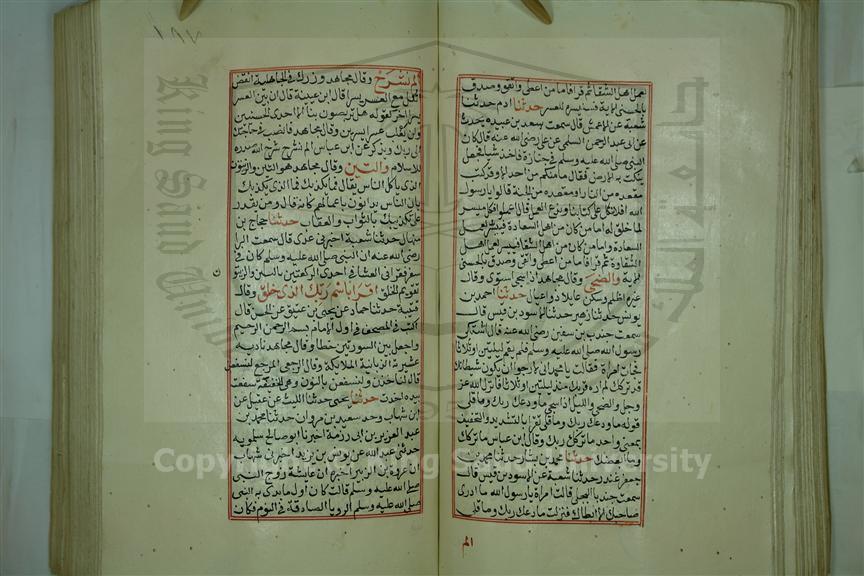 اهل الشقاوة ثم قرا فاما من اعطى واتقى وصدق
بالحسنى الاية فسنيسره للعسرى حدثنا ادم حدثنا
شعبة عن الاعمش قال سمعت سعد بن عبيدة يحدث
عن ابى عبد الرحمن السلمى عن على رضى الله عنه قال كان
النبى صلى الله عليه وسلم فى جنازة فاخذ شيئا فجعل
ينكت به الارض فقال ما منكم من احد الا وقد كتب
مقعده من النار ومقعده من الجنة قالوا يا رسول
الله افلا نتكل على كتابنا وندع العمل قال اعملوا فكل ميسر
لما خلق له اما من كان من اهل السعادة فييسر لعمل
السعادة واما من كان من اهل الشقا فييسر لعمل اهل
الشقاوة ثم قرا فاما من اعطى واتقى وصدق بالحسنى
الاية والضحى وقال مجاهد اذا سجى استوى وقال
غيره اظلم وسكن عايلا ذو عيال حدثنا احمد بن
يونس حدثنا زهير حدثنا الاسود بن قيس قال
سمعت جندب بن سفين رضى الله عنه قال اشتكى
رسول الله صلى الله عليه وسلم فلم يقم ليلتين او ثلاثا
فجات امراة فقالت يا محمد انى لارجو ان يكون شيطانك
قد تركك لم اره قربك منذ ليلتين او ثلاثا فانزل الله عز
وجل والضحى والليل اذا سجى ما ودعك ربك وما قلى
قوله ما ودعك ربك وما قلى تقرا بالتشديد والتخفيف
بمعنى واحد ما تركك ربك وقال ابن عباس ما تركك
وما ابغضك حدثنا محمد بن بشار حدثنا محمد بن
جعفر غندر حدثنا شعبة عن الاسود بن قيس قال
سمعت جندبا البجلى قالت امراة يا رسول الله ما ارى
صاحبك الا ابطاك فنزلت ما ودعك ربك وما قلى
الم
الم نشرح وقال مجاهد وزرك فى الجاهلية انقض
اثقل مع العسر يسرا قال ابن عيينة قال ان بين العسر
يسرا اخر لقوله هل تربصون بنا الا احدى الحسنيين
ولن يغلب عسر يسرين وقال مجاهد فانصب فى حاجتك
الى ربك ويذكر عن ابن عباس الم نشرح شرح الله صدره
للاسلام والتين وقال مجاهد هو التين والزيتون
الذى ياكل الناس يقال فما يكذبك فما الذى يكذبك
بان الناس يدانون باعمالهم كانه قال ومن يقدر
على تكذيبك بالثواب والعقاب حدثنا حجاج بن
منهال حدثنا شعبة اخبرنى عدى قال سمعت البرا
رضى الله عنه ان النبى صلى الله عليه وسلم كان فى
سفر فقرا فى العشا فى احدى الركعتين بالتين والزيتو
تقويم الخلق اقرا باسم ربك الذى خلق وقال
قتيبة حدثنا حماد عن يحيى بن عتيق عن الحسن قال
اكتب فى المصحف فى اول الامام بسم الرحمن الرحيم
واجعل بين السورتين خطا وقال مجاهد ناديه
عشيرته الزبانية الملايكة وقال الرجعى المرجع لنسفعن
قال لناخذن ولنسفعن بالنون وهى الخفيفة سفعت
بيده اخذت حدثنا يحيى حدثنا الليث عن عقيل عن
ابن شهاب وحدثنى سعيد بن مروان حدثنا محمد بن
عبد العزيز بن ابى رزمة اخبرنا ابو صالح سلمويه
حدثنى عبد الله عن يونس بن يزيد اخبرنى ابن شهاب
ان عروة بن الزبير اخبره ان عايشة زوج النبى
صلى الله عليه وسلم قالت كان اول ما بدى به النبى
صلى الله عليه وسلم الرويا الصادقة فى النوم فكان
Copyright © King Saud University
King Saud University
جامعة الملك سعود
1957